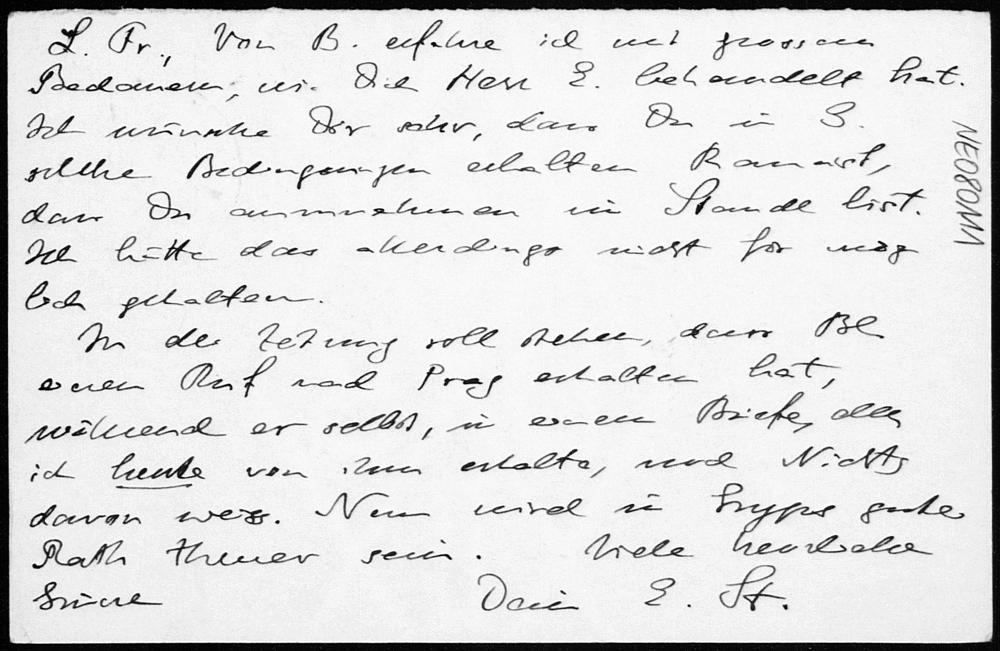 L. Fr., Von B. erfahre ich mit grossem
Bedauern, wie Dich Herr E. behandelt hat.
Ich wünsche Dir sehr, dass Du in S.
solche Bedingungen erhalten kannst,
dass Du anzunehmen im Stande bist.
Ich hätte das allerdings nicht für mög
lich gehalten.
In der Zeitung soll stehen, dass Bl
einen Ruf nach Prag erhalten hat,
während er selbst, in einem Briefe, den
ich heute von ihm erhalte, noch Nichts
davon weiss. Nun wird in guter
Rath theuer sein. Viele herzliche
Grüsse Dein E. St.
NE080M1